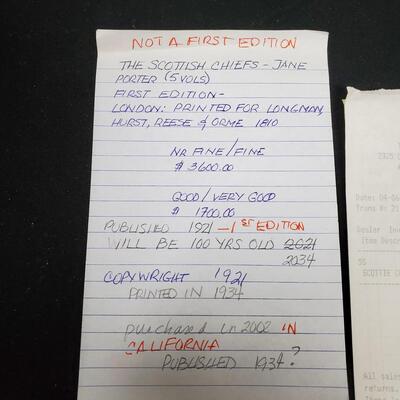 NOT A FIRST EDITION
THE SCOTTISH CHIEFS - JANE
PORTER (5 VOLS)
FIRST EDITION -
LONDON: PRINTED FOR LONGMAN,
HURST, REESE & ORME 1810
NR FINE/FINE
$3600.00
GOOD/VERY GOOD
$ 1700.00
PUBLISHED 1921 - 1ST EDITION
WILL BE 100 YRS OLD 2021
2034
COPYWRIGHT 1921
PRINTED IN 1934
purchased in 2002 IN
CALIFORNIA
PUBLISHED 1934?
Date: 04-06
Trans #: 21
Dealer Inv
Item Descr
SS
SCOTTIE C
All sales
returns.